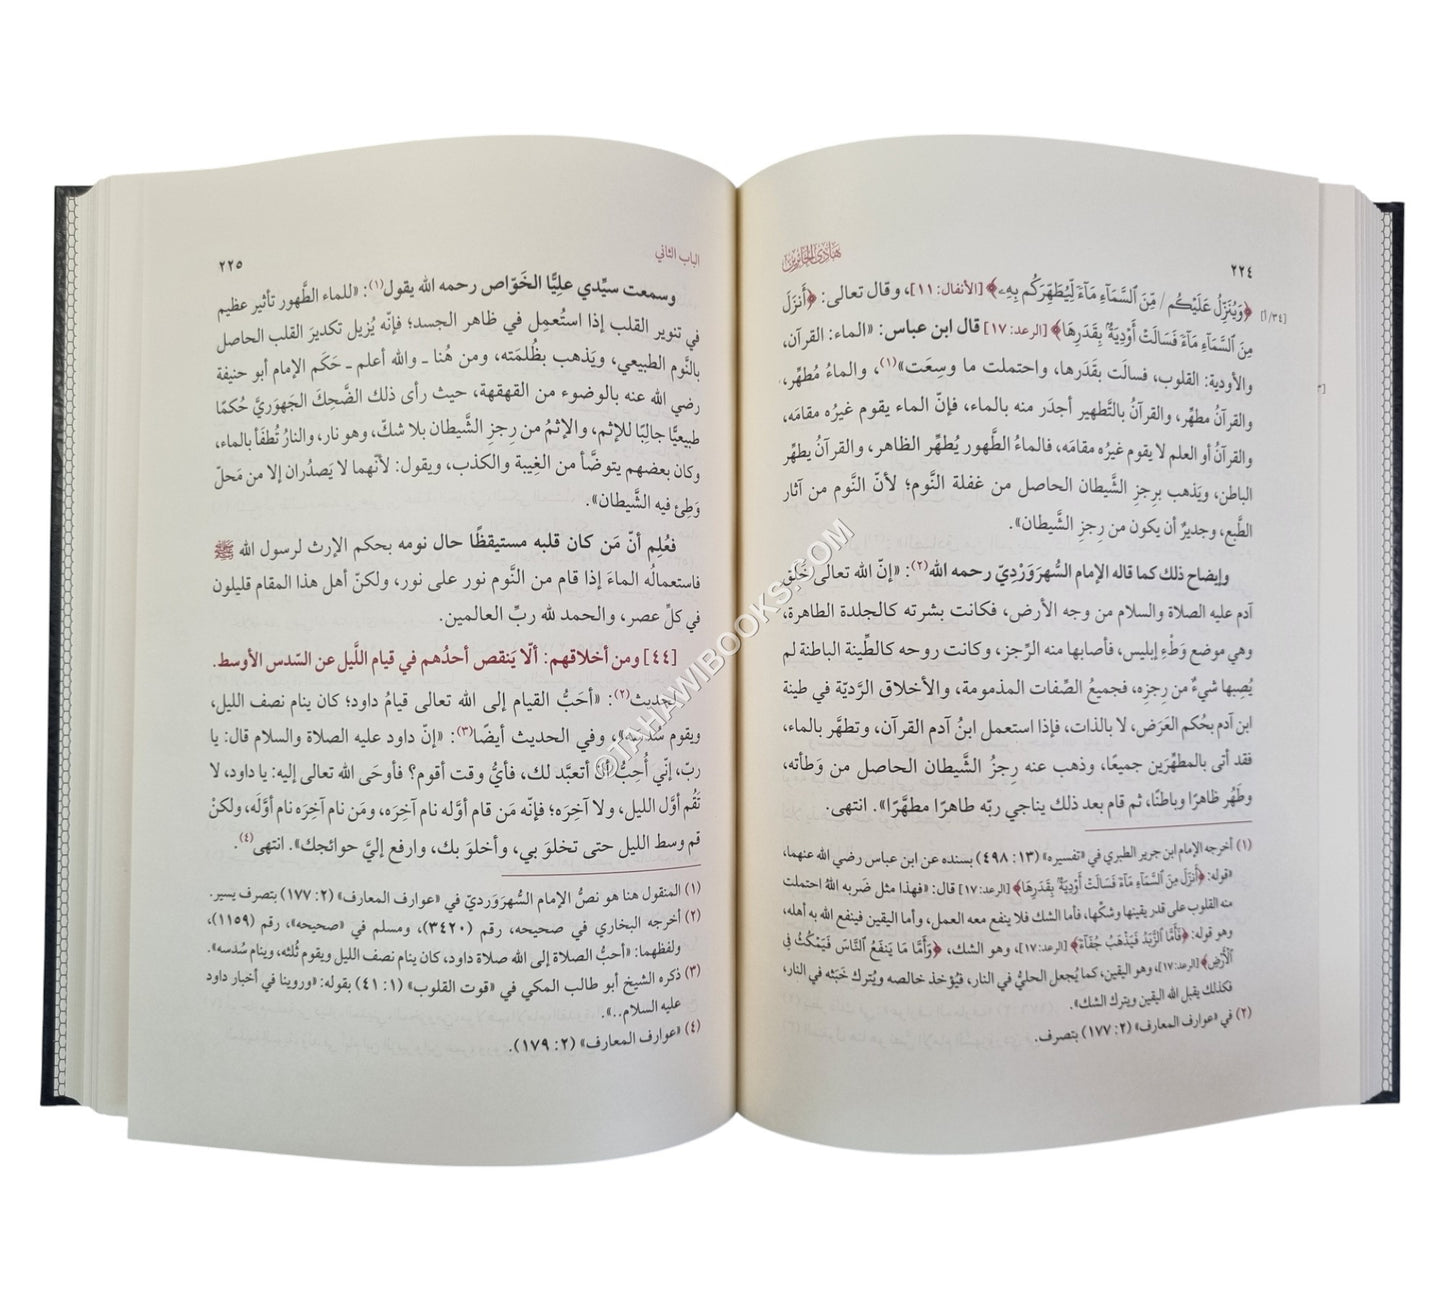 ٢٢٤
هادي الحائرين
[٣٤/أ]
﴿وَيُنَزِّلُ عَلَيْكُم / مِّنَ ٱلسَّمَآءِ مَآءً لِّيُطَهِّرَكُم بِهِۦ﴾ [الأنفال: ١١]، وقال تعالى: ﴿أَنزَلَ
مِنَ ٱلسَّمَآءِ مَآءً فَسَالَتْ أَوْدِيَةٌ بِقَدَرِهَا﴾ [الرعد: ١٧] قال ابن عباس: «الماء: القرآن،
والأودية: القلوب، فسالَت بقَدَرها، واحتملت ما وسِعَت»(١)، والماءُ مُطهِّر،
والقرآنُ مطهِّر، والقرآنُ بالتَّطهير أجدَر منه بالماء، فإنّ الماء يقوم غيرُه مقامَه،
والقرآنُ أو العلم لا يقوم غيرُه مقامَه، فالماءُ الطَّهور يُطهِّر الظاهر، والقرآنُ يطهِّر
الباطن، ويَذهب برِجزِ الشَّيطان الحاصل من غفلة النَّوم؛ لأنّ النَّوم من آثار
الطَّبع، وجديرٌ أن يكون من رِجزِ الشَّيطان».
وإيضاح ذلك كما قاله الإمام السُّهرَوَرْديّ رحمه الله(٢): «إنّ الله تعالى خلَق
آدم عليه الصلاة والسلام من وجه الأرض، فكانت بشرته كالجلدة الطاهرة،
وهي موضع وَطْءِ إبليس، فأصابها منه الرِّجز، وكانت روحه كالطِّينة الباطنة لم
يُصِبها شيءٌ من رِجزِه، فجميعُ الصِّفات المذمومة، والأخلاق الرَّديّة في طينة
ابن آدم بحُكم العَرَض، لا بالذات، فإذا استعمل ابنُ آدم القرآن، وتطهَّر بالماء،
فقد أتى بالمطهِّرَين جميعًا، وذهب عنه رِجزُ الشَّيطان الحاصل من وَطأته،
وطَهُر ظاهرًا وباطنًا، ثم قام بعد ذلك يناجي ربّه طاهرًا مطهَّرًا». انتهى.
(١) أخرجه الإمام ابن جرير الطبري في «تفسيره» (١٣: ٤٩٨) بسنده عن ابن عباس رضي الله عنهما،
«قوله: ﴿أَنزَلَ مِنَ ٱلسَّمَآءِ مَآءً فَسَالَتْ أَوْدِيَةٌ بِقَدَرِهَا﴾ [الرعد: ١٧] قال: «فهذا مثل ضَربه اللهُ احتملت
منه القلوب على قدر يقينها وشكِّها، فأما الشك فلا ينفع معه العمل، وأما اليقين فينفع الله به أهله،
وهو قوله: ﴿فَأَمَّا ٱلزَّبَدُ فَيَذْهَبُ جُفَآءً﴾ [الرعد: ١٧]، وهو الشك، ﴿وَأَمَّا مَا يَنفَعُ ٱلنَّاسَ فَيَمْكُثُ فِي
ٱلْأَرْضِ﴾ [الرعد: ١٧]، وهو اليقين، كما يُجعل الحليُّ في النار، فيُؤخذ خالصه ويُترك خَبَثه في النار،
فكذلك يقبل الله اليقين ويترك الشك».
(٢) في «عوارف المعارف» (٢: ١٧٧) بتصرف.
الباب الثاني
٢٢٥
وسمعت سيِّدي علِيًّا الخَوّاص رحمه الله يقول(١): «للماء الطَّهور تأثير عظيم
في تنوير القلب إذا استُعمِل في ظاهر الجسد؛ فإنّه يُزيل تكديرَ القلب الحاصل
بالنَّوم الطبيعي، ويَذهب بظُلمَته، ومن هُنا ـ والله أعلم ـ حَكَم الإمام أبو حنيفة
رضي الله عنه بالوضوء من القهقهة، حيث رأى ذلك الضَّحِكَ الجَهوَريَّ حُكمًا
طبيعيًّا جالِبًا للإثم، والإثمُ من رِجزِ الشَّيطان بلا شكّ، وهو نار، والنارُ تُطفَأ بالماء،
وكان بعضهم يتوضَّأ من الغِيبة والكذب، ويقول: لأنّهما لا يَصدُران إلا من مَحلّ
وَطِئ فيه الشَّيطان».
فعُلِم أنّ مَن كان قلبه مستيقظًا حال نومه بحكم الإرث لرسول الله ﷺ
فاستعمالُه الماءَ إذا قام من النَّوم نور على نور، ولكنّ أهل هذا المقام قليلون
في كلّ عصر، والحمد لله ربِّ العالمين.
[٤٤] ومن أخلاقهم: ألّا يَنقص أحدُهم في قيام اللَّيل عن السّدس الأوسط.
لحديث(٢): «أحَبُّ القيام إلى الله تعالى قيامُ داود؛ كان ينام نصف الليل،
ويقوم سُدُسه»، وفي الحديث أيضًا(٣): «إنّ داود عليه الصلاة والسلام قال: يا
ربّ، إنّي أُحِبُّ أن أتعبَّد لك، فأيُّ وقت أقوم؟ فأوحَى الله تعالى إليه: يا داود، لا
تَقُم أوَّل الليل، ولا آخِرَه؛ فإنّه مَن قام أوَّله نام آخِرَه، ومَن نام آخِرَه نام أوَّلَه، ولكنْ
قم وسط الليل حتى تخلوَ بي، وأخلوَ بك، وارفع إليَّ حوائجك». انتهى(٤).
(١) المنقول هنا هو نصُّ الإمام السُّهرَوَرديّ في «عوارف المعارف» (٢: ١٧٧) بتصرف يسير.
(٢) أخرجه البخاري في صحيحه، رقم (٣٤٢٠)، ومسلم في «صحيحه»، رقم (١١٥٩)،
ولفظهما: «أحبُّ الصلاة إلى الله صلاة داود، كان ينام نصف الليل ويقوم ثُلثه، وينام سُدسه».
(٣) ذكره الشيخ أبو طالب المكي في «قوت القلوب» (١: ٤١) بقوله: «وروينا في أخبار داود
عليه السلام..».
(٤) «عوارف المعارف» (٢: ١٧٩).
©TAHAWIBOOKS.COM